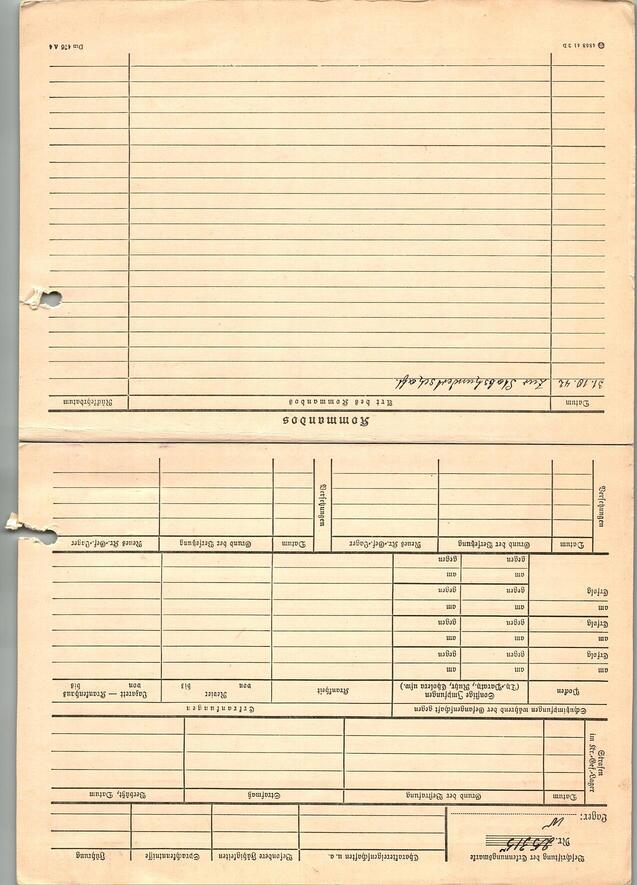 Beschriftung der Erkennungsmarke
Nr. 25315
Lager: W
Charaktereigenschaften u.a.
Besondere Fähigkeiten
Sprachkenntnisse
Führung
Strafen im Kr.-Gef.-Lager
Datum
Grund der Bestrafung
Strafmaß
Verbüßt, Datum
Schutzimpfungen während der Gefangenschaft gegen
Erkrankungen
Pocken
Sonstige Impfungen
(Ty.-Paraty., Ruhr, Cholera usw.)
Krankheit
Revier
von bis
Lazarett — Krankenhaus
von bis
am am am
Erfolg gegen gegen
am am am
Erfolg gegen gegen
am am am
Erfolg gegen gegen
am am
gegen gegen
Versetzungen
Datum
Grund der Versetzung
Neues Kr.-Gef.-Lager
Versetzungen
Datum
Grund der Versetzung
Neues Kr.-Gef.-Lager
Kommandos
Datum
Art des Kommandos
Rückkehrdatum
31.10.42 Zur Stabshundertschaft.
4803 41 2 D
Din 476 A 4